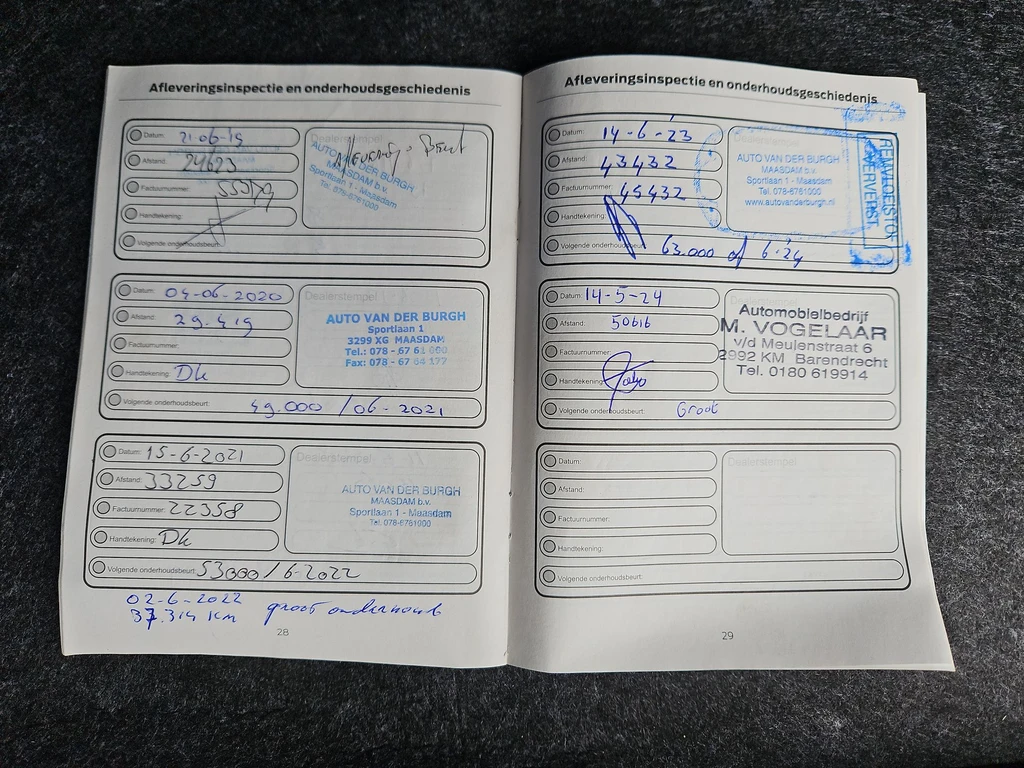 Afleveringsinspectie en onderhoudsgeschiedenis
Datum: 21-06-19
Afstand: 24623
Factuurnummer:
Handtekening:
Volgende onderhoudsbeurt:
Dealerstempel
Aflevering - Beurt
AUTO VAN DER BURGH
MAASDAM b.v.
Sportlaan 1 - Maasdam
Tel. 078-6761000
Datum: 04-06-2020
Afstand: 29.419
Factuurnummer:
Handtekening: Dk
Volgende onderhoudsbeurt: 49.000 / 06-2021
Dealerstempel
AUTO VAN DER BURGH
Sportlaan 1
3299 XG MAASDAM
Tel.: 078 - 67 61 000
Fax: 078 - 67 64 177
Datum: 15-6-2021
Afstand: 33259
Factuurnummer: 22358
Handtekening: Dk
Volgende onderhoudsbeurt: 53000/6-2022
Dealerstempel
AUTO VAN DER BURGH
MAASDAM b.v.
Sportlaan 1 - Maasdam
Tel. 078-6761000
02-6-2022
37.314 KM groot onderhoud
28
Afleveringsinspectie en onderhoudsgeschiedenis
Datum: 14-6-'23
Afstand: 43432
Factuurnummer: 45432
Handtekening:
Volgende onderhoudsbeurt: 63.000 of 6-'24
AUTO VAN DER BURGH
MAASDAM b.v.
Sportlaan 1 - Maasdam
Tel. 078-6761000
www.autovanderburgh.nl
REMVLOEISTOF
VERVERST
Datum: 14-5-24
Afstand: 50616
Factuurnummer:
Handtekening:
Volgende onderhoudsbeurt: Groot
Dealerstempel
Automobielbedrijf
M. VOGELAAR
v/d Meulenstraat 6
2992 KM Barendrecht
Tel. 0180 619914
Datum:
Afstand:
Factuurnummer:
Handtekening:
Volgende onderhoudsbeurt:
Dealerstempel
29